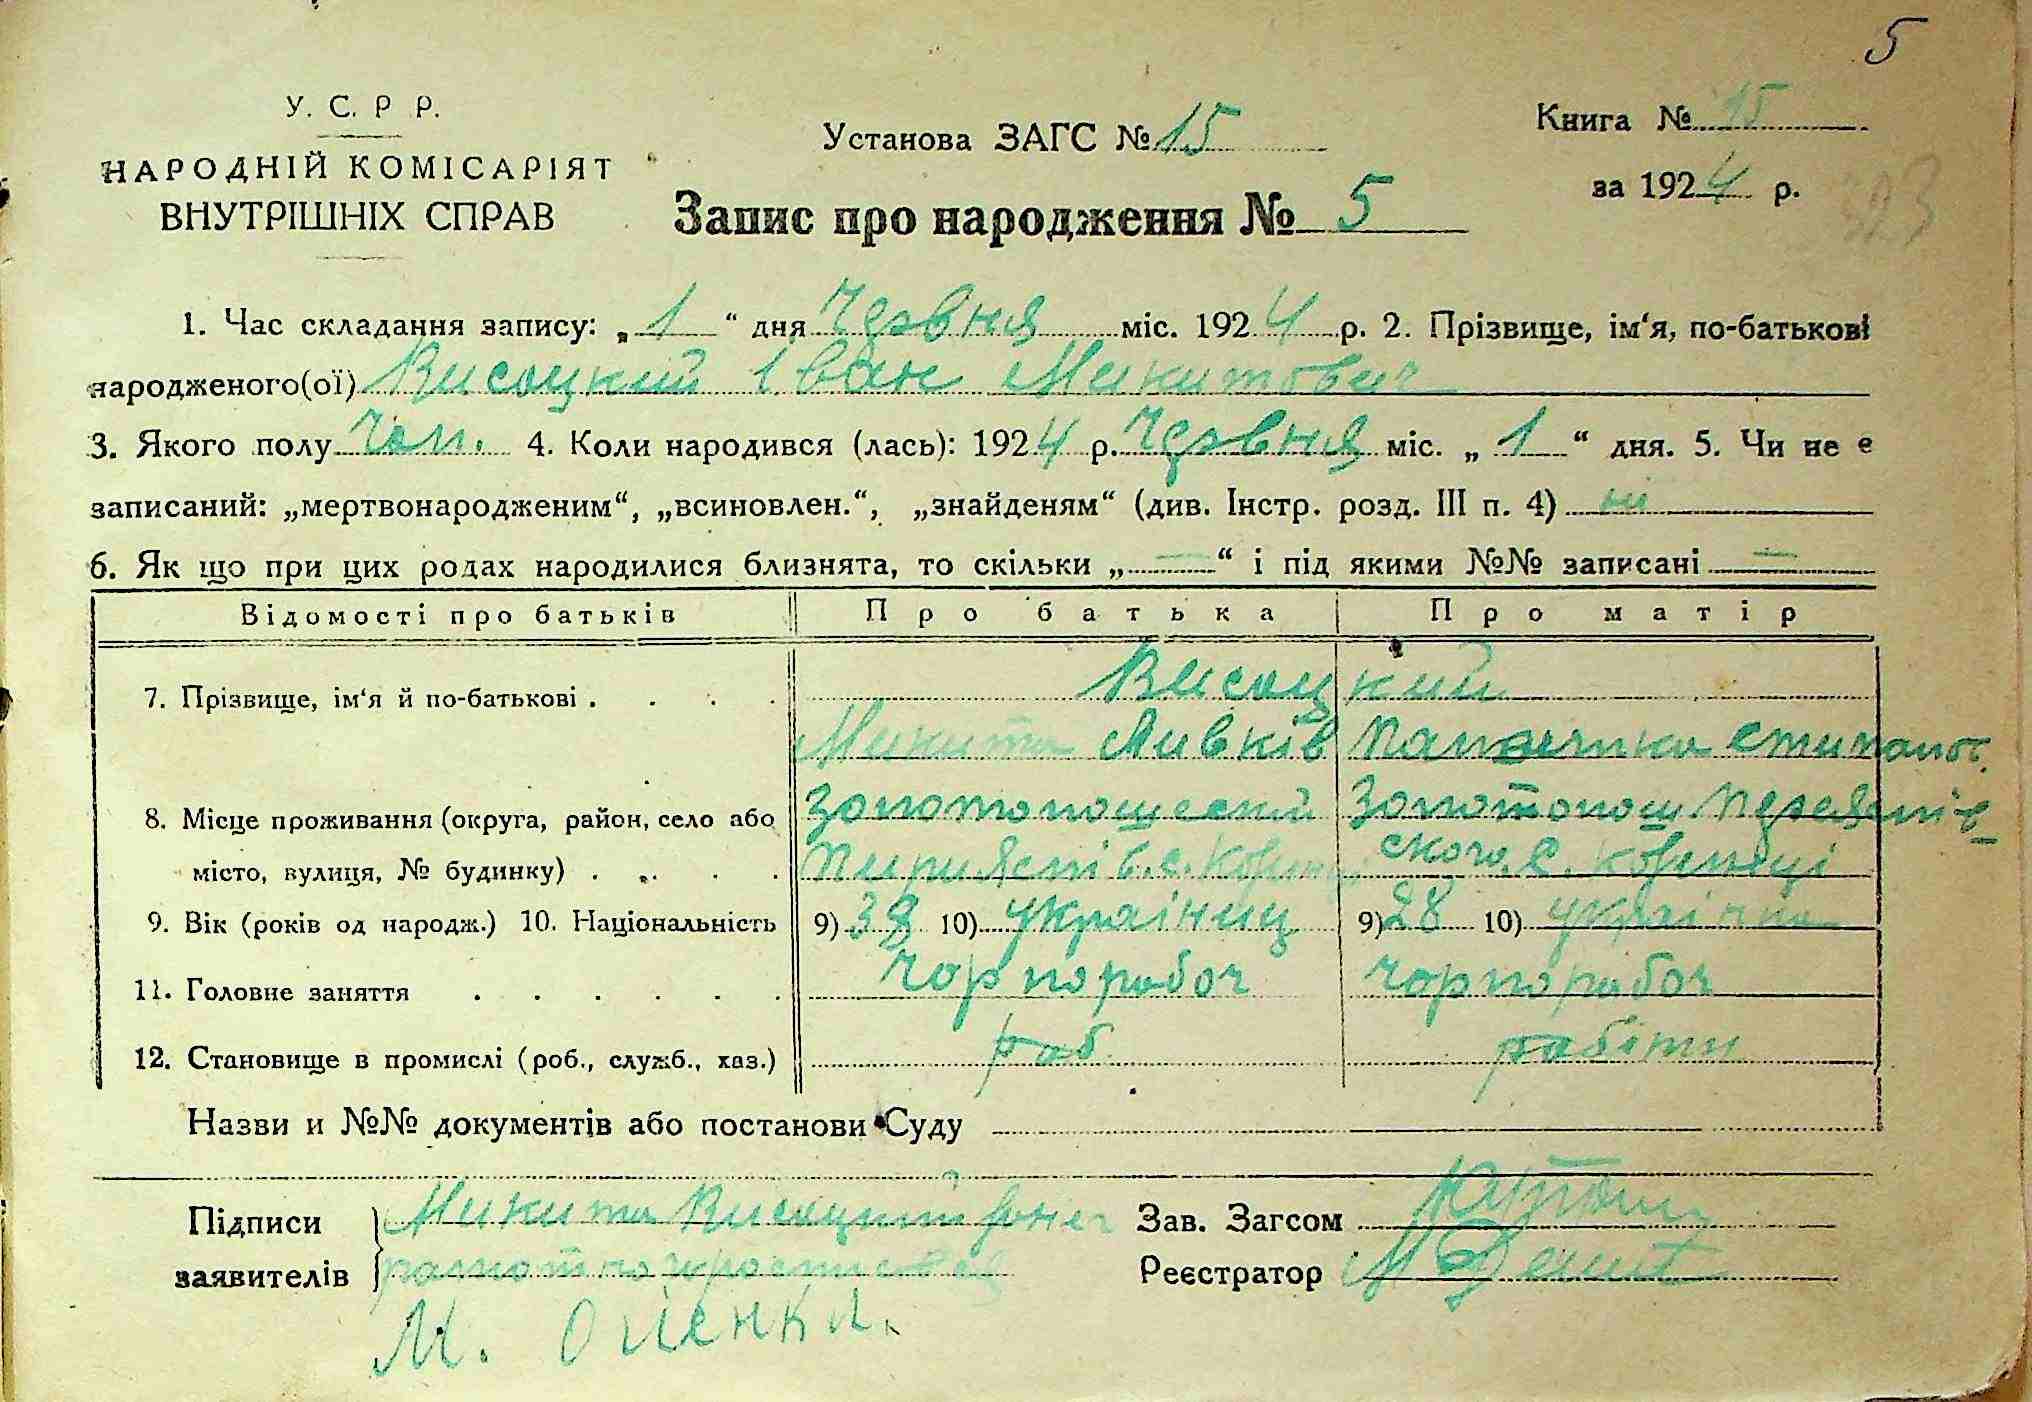 5
У. С. Р Р.
НАРОДНІЙ КОМІСАРІЯТ
ВНУТРІШНІХ СПРАВ
Установа ЗАГС № 15
Книга № 15
за 1924 р.
323
Запис про народження № 5
1. Час складання запису: „ 1 “ дня Червня міс. 1924 р. 2. Прізвище, ім‘я, по-батькові
народженого(ої) Висоцкий Іван Микитович
3. Якого полу Чол. 4. Коли народився (лась): 1924 р. Червня міс. „ 1 “ дня. 5. Чи не є
записаний: „мертвонародженим“, „всиновлен.“, „знайденям“ (див. Інстр. розд. III п. 4) ні
6. Як що при цих родах народилися близнята, то скільки „ — “ і під якими №№ записані —
Відомості про батьків Про батька Про матір
7. Прізвище, ім‘я й по-батькові . . . . Висоцкий
Микита
8. Місце проживання (округа, район, село або
місто, вулиця, № будинку) . . . .
9. Вік (років од народж.) 10. Національність 9) 38 10) українец 9) 28 10) українка
11. Головне заняття . . . . . . Чорнорабоч чорнорабоч
12. Становище в промислі (роб., служб., хаз.) раб.
Назви и №№ документів або постанови Суду
Підписи Микита Висоцкий Зав. Загсом
заявителів Реєстратор
М.